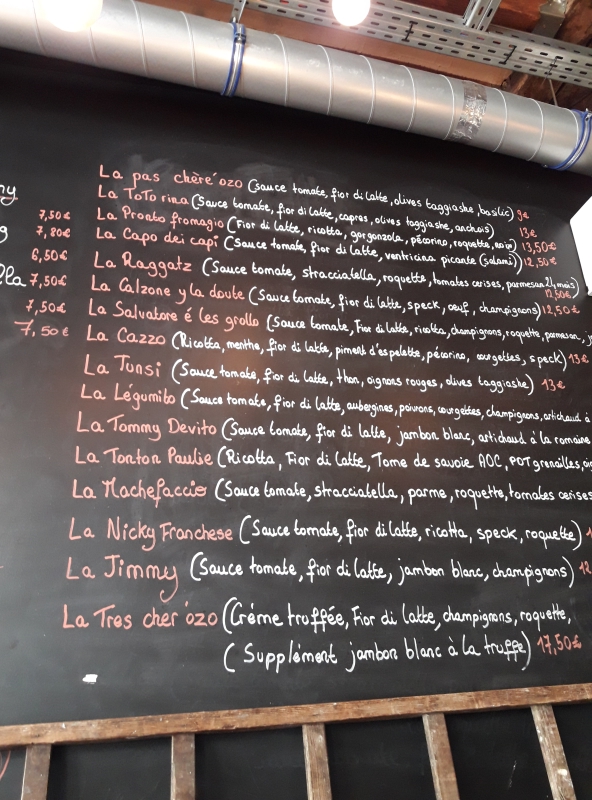 ny
g
lla
7,50€
7,80€
6,50€
7,50€
7,50€
7,50€
La pas chère'ozo (Sauce tomate, fior di latte, olives taggiashe, basilic) 9€
La ToTo rina (Sauce tomate, fior di latte, capres, olives taggiashe, anchois) 13€
La Pronto fromagio (Fior di latte, ricotta, gorgonzola, pécorino, roquette, noix) 13,50€
La Capo dei capi (Sauce tomate, fior di latte, ventricina picante (salami)) 12,50€
La Raggatz (Sauce tomate, stracciatella, roquette, tomates cerises, parmesan 24 mois) 12,50€
La Calzone y la doute (Sauce tomate, fior di latte, speck, oeuf, champignons) 12,50€
La Salvatore é les grollo (Sauce tomate, Fior di latte, ricotta, champignons, roquette, parmesan, j
La Cazzo (Ricotta, menthe, fior di latte, piment d'espelette, pécorino, courgettes, speck) 13€
La Tunsi (Sauce tomate, fior di latte, thon, oignons rouges, olives taggiashe) 13€
La Légumito (Sauce tomate, fior di latte, aubergines, poivrons, courgettes, champignons, artichaud à
La Tommy Devito (Sauce tomate, fior di latte, jambon blanc, artichaud à la romaine
La Tonton Paulie (Ricotta, Fior di latte, Tome de savoie AOC, POT grenailles, oig
La Machefaccio (Sauce tomate, stracciatella, parme, roquette, tomates cerises
La Nicky Franchese (Sauce tomate, fior di latte, ricotta, speck, roquette) 1
La Jimmy (Sauce tomate, fior di latte, jambon blanc, champignons) 12
La Tres cher'ozo (Crème truffée, Fior di latte, champignons, roquette,
(Supplément jambon blanc à la truffe) 17,50€